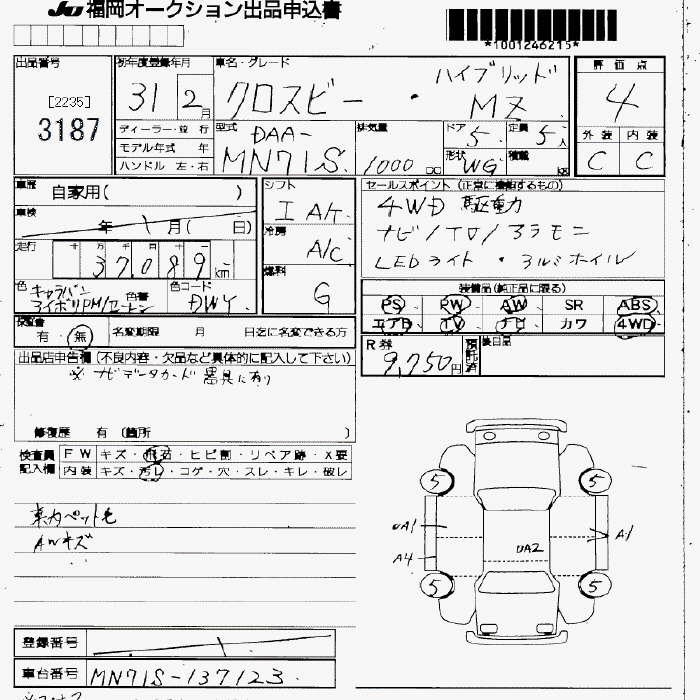 JU 福岡オークション出品申込書
*1001246215*
出品番号 [2235] 3187
初年度登録年月 31 2月
車名・グレード クロスビー ・ ハイブリッド MZ
評価点 4
外装 内装
C C
ディーラー・並行
モデル年式 年
ハンドル 左・右
型式 DAA- MN71S
排気量 1000 cc
ドア 5 定員 5人
形状 WG 積載 kg
車歴 自家用( )
シフト I A/T
セールスポイント (正常に機能するもの)
4WD 駆動力
ナビ/TV/アラモニ
LEDライト ・ アルミホイル
車検 年 月( 日)
冷房 A/C
走行 十 万 千 百 十 一
37,089 km
燃料 G
色 キャラバン アイボリPM/ 色替
色コード DWY
装備品(純正品に限る)
PS PW AW SR ABS
エアB TV ナビ カワ 4WD
保証書 有・無 名変期限 月 日迄に名変できる方
R券 9,750円 預託済 後日品
出品店申告欄 (不良内容・欠品など具体的に記入して下さい)
※ ナビデータカード 器具に有り
修復歴 有 (箇所 )
検査員記入欄
FW キズ・飛石・ヒビ割・リペア跡・X要
内装 キズ・汚レ・コゲ・穴・スレ・キレ・破レ
車内ペット毛
AWキズ
5 5
UA1 A1
A4 UA2
5 5
登録番号
車台番号 MN71S-137123